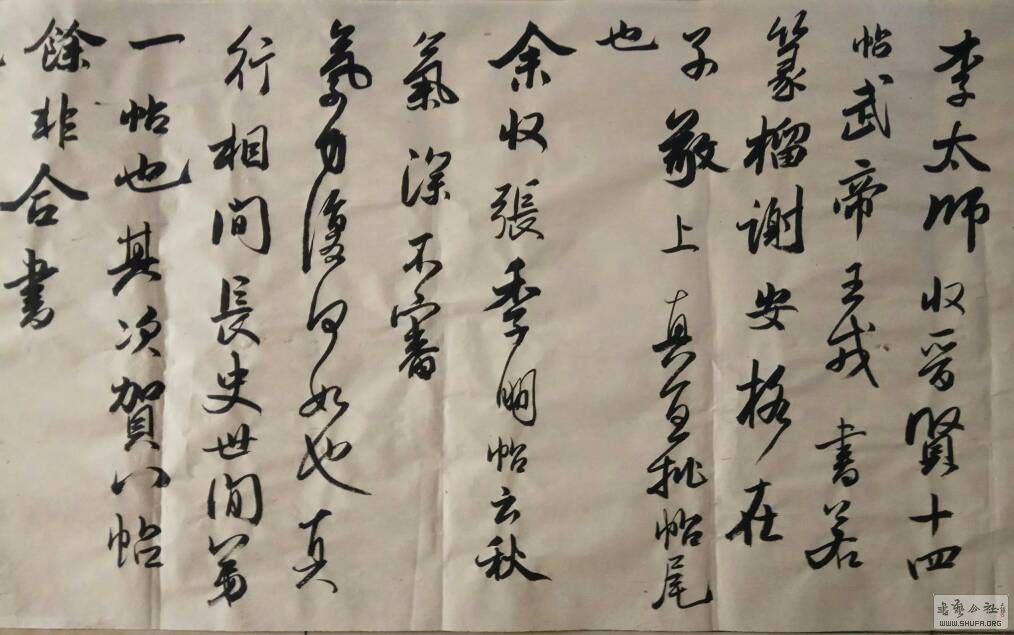 李太師收晉賢十四
帖武帝王戎書若
篆榴謝安格在
子敬上真亘批帖尾
也
余收張季明帖云秋
氣深不審
氣力復何如也真
行相間長史世間第
一帖也其次賀八帖
餘非合書
書藝公社
WWW.SHUFA.ORG